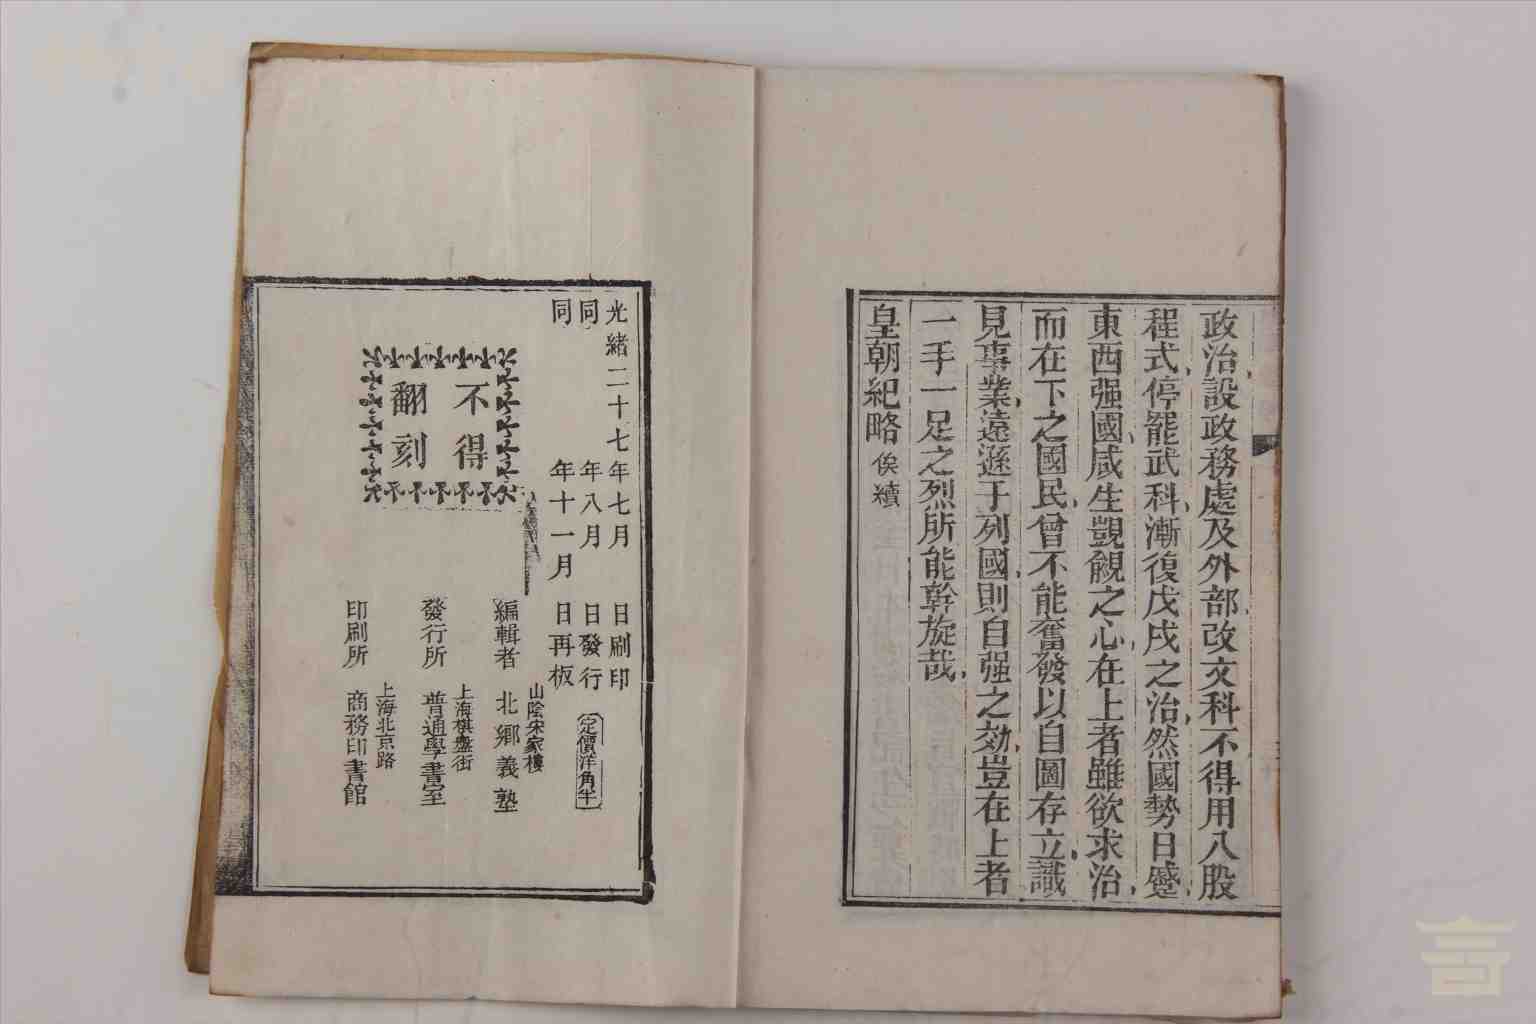 政治設政務處及外部改文科不得用八股
程式停罷武科漸復戊戌之治然國勢日蹙
東西强國咸生覬覦之心在上者雖欲求治
而在下之國民曾不能奮發以自圖存立識
見事業遠遜于列國則自强之効豈在上者
一手一足之烈所能幹旋哉
皇朝紀略 俟續
光緒二十七年七月 日刷印
同 年八月 日發行
同 年十一月 日再板
定價洋角半
不得
翻刻
山陰宋家樓
編輯者 北鄉義塾
上海棋盤街
發行所 普通學書室
上海北京路
印刷所 商務印書館